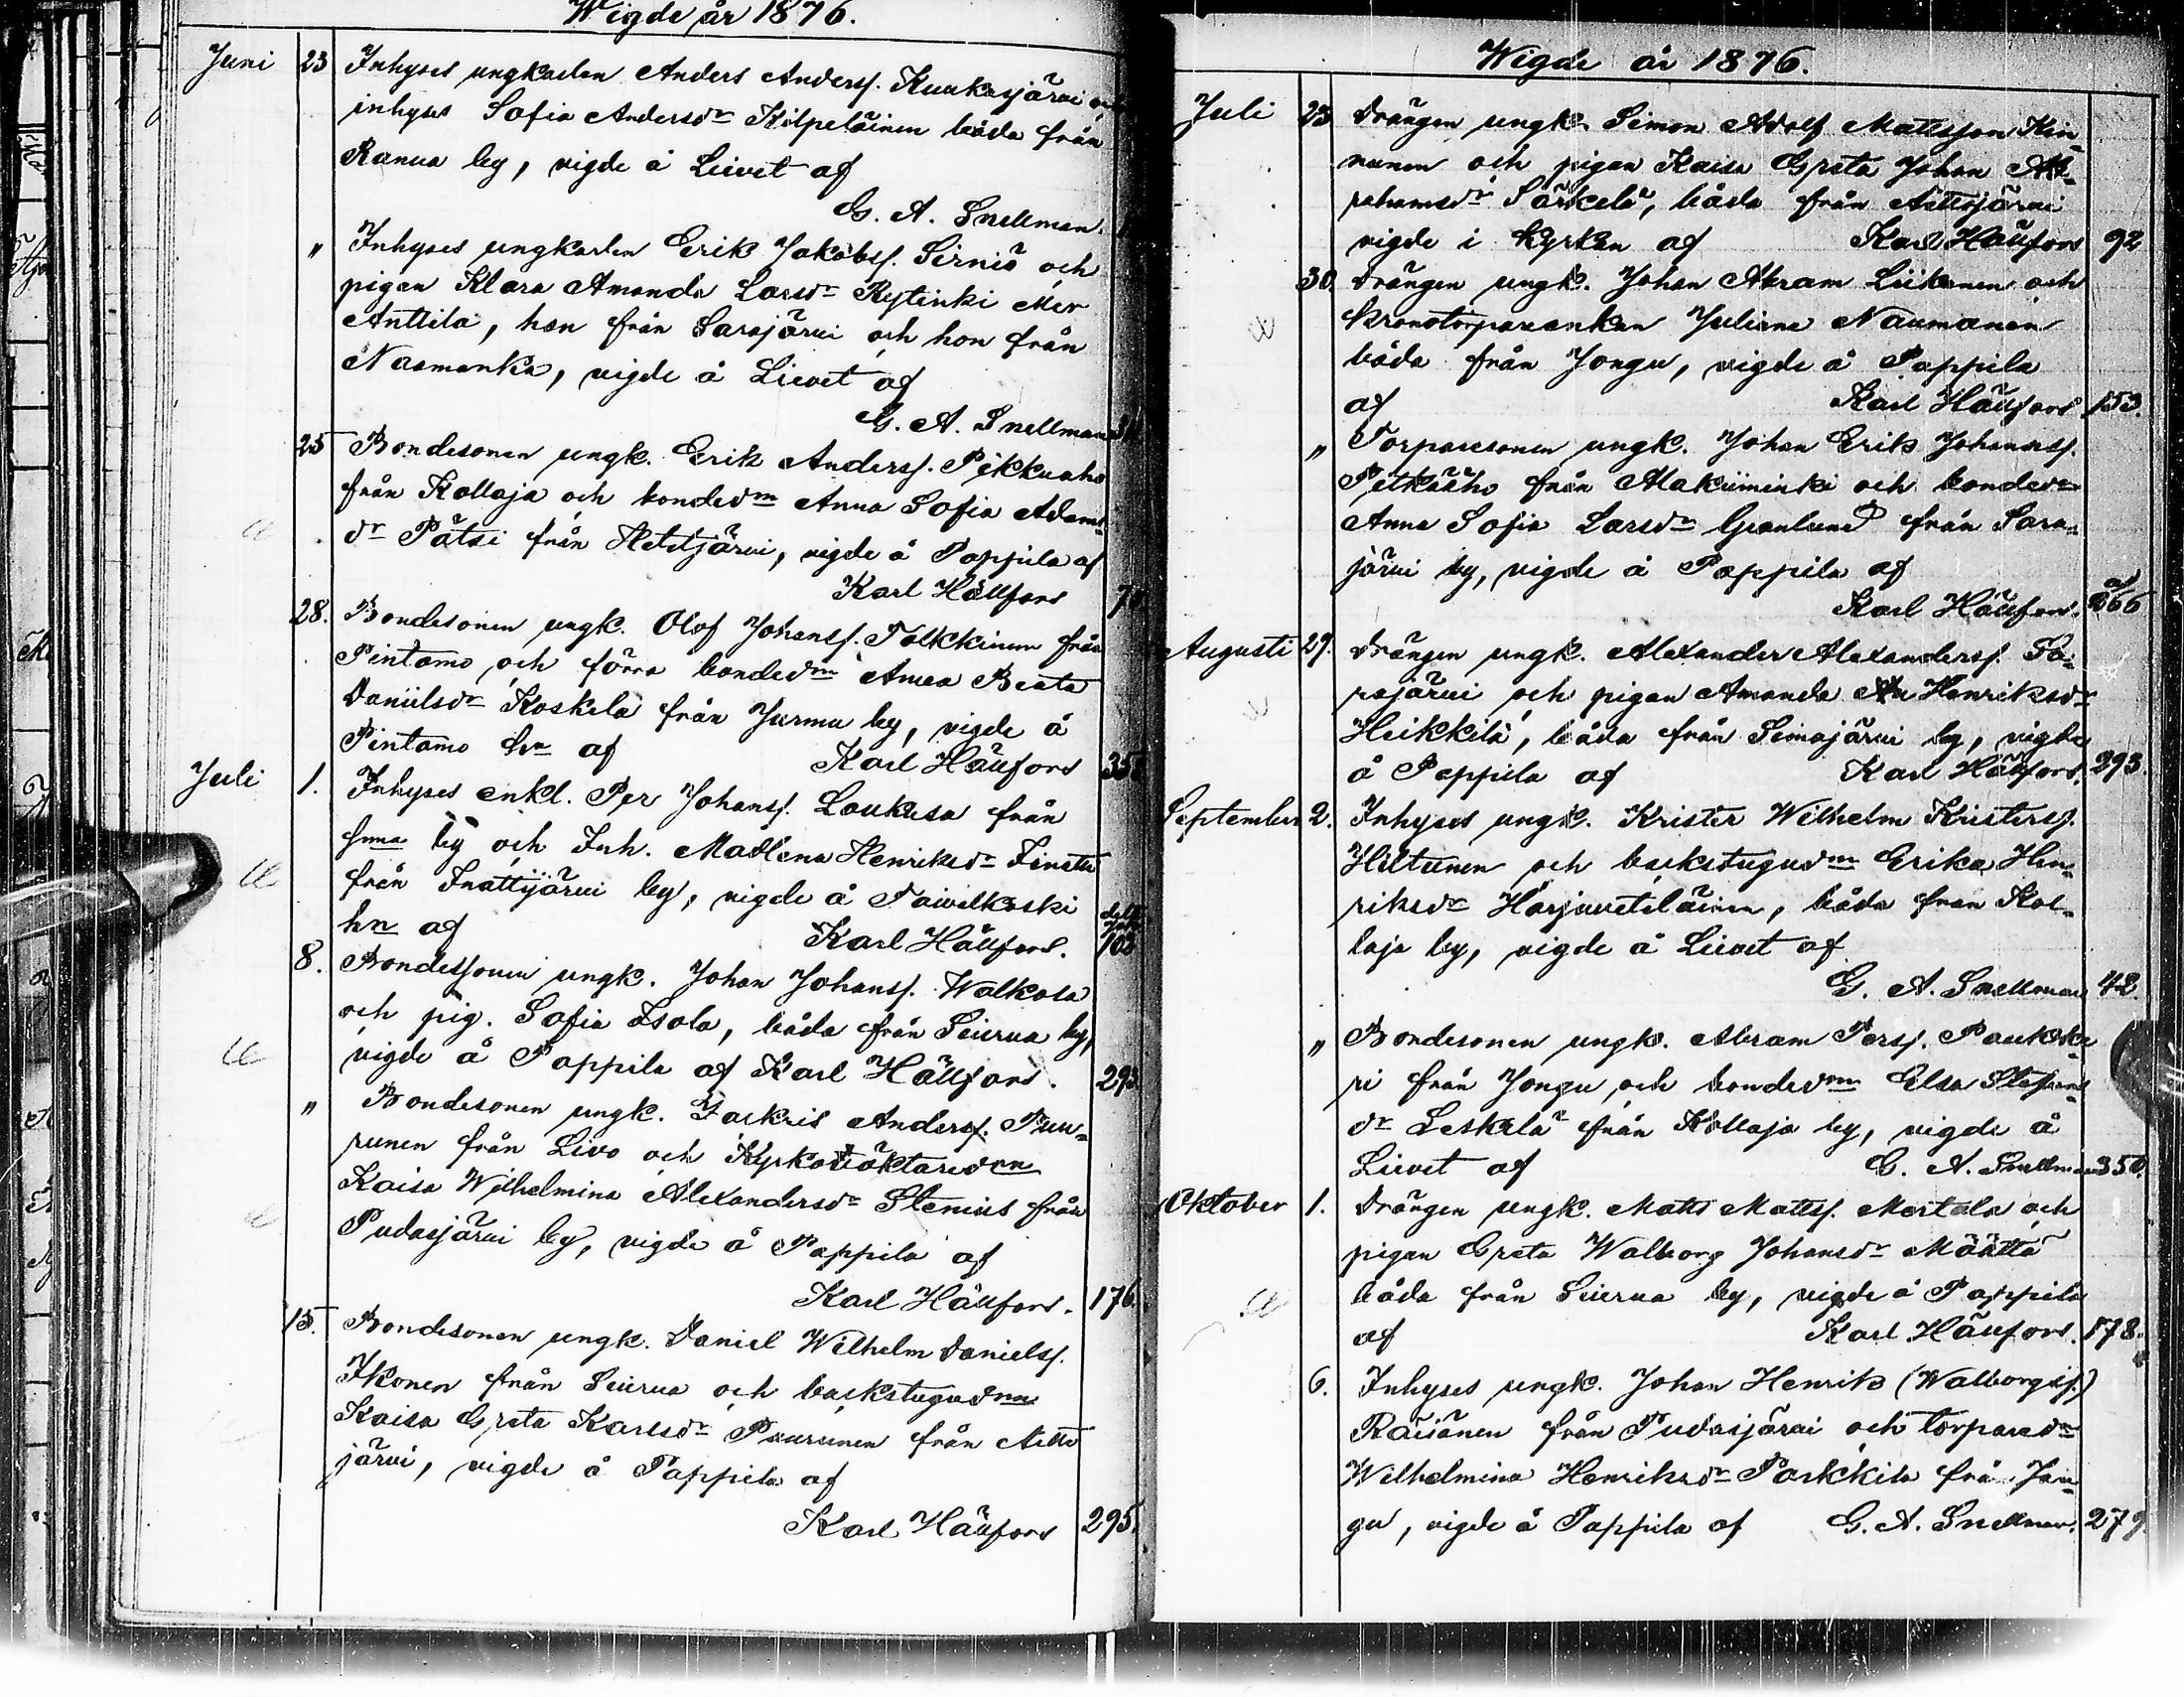 Wigde år 1876.
Juni 23 Inhyses ungkarlen Anders Anderss. Kuukasjärvi
inhyses Sofia Andersdr Kilpeläinen båda från
Ranua by, vigde å Liivet af
G. A. Snellman.
" Inhyses ungkarlen Erik Jakobss. Sirniö och
pigan Klara Amanda Larsdr Rytinki eller
Anttila, han från Sarajärvi och hon från
Naamanka, vigde å Liivet af
G. A. Snellman
25 Bondesonen ungk. Erik Anderss. Pikkuaho
från Kollaja och bondedrn Anna Sofia Adams-
dr Pätsi från Hetejärvi, vigde å Pappila af
Karl Hällfors
28. Bondesonen ungk. Olof Johanss. Tolkkinen från
Pintamo och förra bondedrn Anna Beata
Danielsdr Koskela från Jurmu by, vigde å
Pintamo hn af Karl Hällfors
Juli 1. Inhyses enkl. Per Johanss. Loukusa från
sma by och Inh. Madlena Henriksdr
från by, vigde å Taivalkoski
hn af Karl Hällfors. 103
8. Bondesonen ungk. Johan Johanss. Walkola
och pig. Sofia Isola, båda från Siurua by,
vigde å Pappila af Karl Hällfors. 293.
" Bondesonen ungk. Zackris Anderss. Puu-
runen från Livo och Kyrkoväktaredrn
Kaisa Wilhelmina Alexandersdr Stenius från
Pudasjärvi by, vigde å Pappila af
Karl Hällfors. 176.
15. Bondesonen ungk. Daniel Wilhelm Danielss.
Ikonen från Siurua och backstugudrn
Kaisa Greta Karlsdr Puurunen från Aitto
järvi, vigde å Pappila af
Karl Hällfors 295.
Wigde år 1876.
Juli 23 Drängen ungk. Simon Adolf Mattsson Kin-
nunen och pigan Kaisa Greta Johan Ab-
rahamsdr Särkelä, båda från Aittojärvi
vigde i kyrkan af Karl Hällfors 92
30. Drängen ungk. Johan Abram Liikanen och
kronotorpareenkan Juliana Naumanen
båda från Jongu, vigde å Pappila
af Karl Hällfors 153.
" Torparesonen ungk. Johan Erik Johanss.
Pitkäaho från Alakiiminki och bondedr
Anna Sofia Larsdr Granlund från Sara-
järvi by, vigde å Pappila af
Karl Hällfors. 266
Augusti 29. Drängen ungk. Alexander Alexanderss.
rajärvi och pigan Amanda Henriksdr
Heikkilä, båda från Simojärvi by, vigde
å Pappila af Karl Hällfors. 293.
September 2. Inhyses ungk. Krister Wilhelm Kristerss.
Hiltunen och backstugudrn Erika Hen-
riksdr Harjuveteläinen, båda från Kol-
laja by, vigde å Liivet af
G. A. Snellman 42.
" Bondesonen ungk. Abram Perss. Paukke-
ri från Jongu och bondedrn Elsa Stefans-
dr Leskelä från Kollaja by, vigde å
Liivet af G. A. Snellman 350.
Oktober 1. Drängen ungk. Matts Mattss. Mertala och
pigan Greta Walborg Johansdr Määttä
båda från Siurua by, vigde å Pappila
af Karl Hällfors. 178.
6. Inhyses ungk. Johan Henrik (Walborgss.)
Räisänen från Pudasjärvi och torparedrn
Wilhelmina Henriksdr Parkkila från Jon-
gu, vigde å Pappila af G. A. Snellman. 279